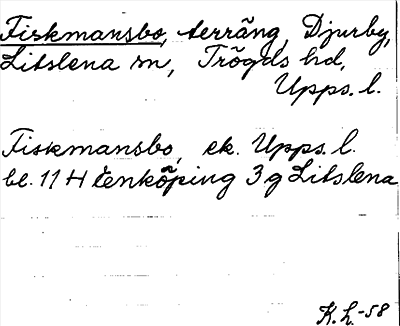 Fiskmansbo, terräng, Djurby,
Litslena sn, Trögds hd,
Upps. l.
Fiskmansbo, ek. Upps. l.
bl. 11 H Enköping 3 g Litslena
K. L. -58